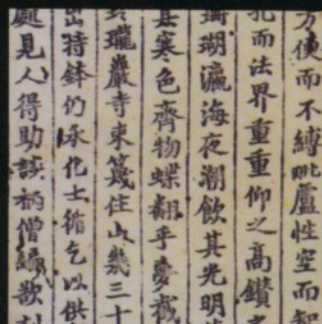 方便而不縛毗盧性空而知
孔而法界重重仰之高鑽
珊瑚瀛海夜潮飲其光明
寒色齊物蝶翻乎夢
玲瓏巖寺東篾住山幾三十
出特鉢仍承化士循乞以供
處見人得助談柄僧歎